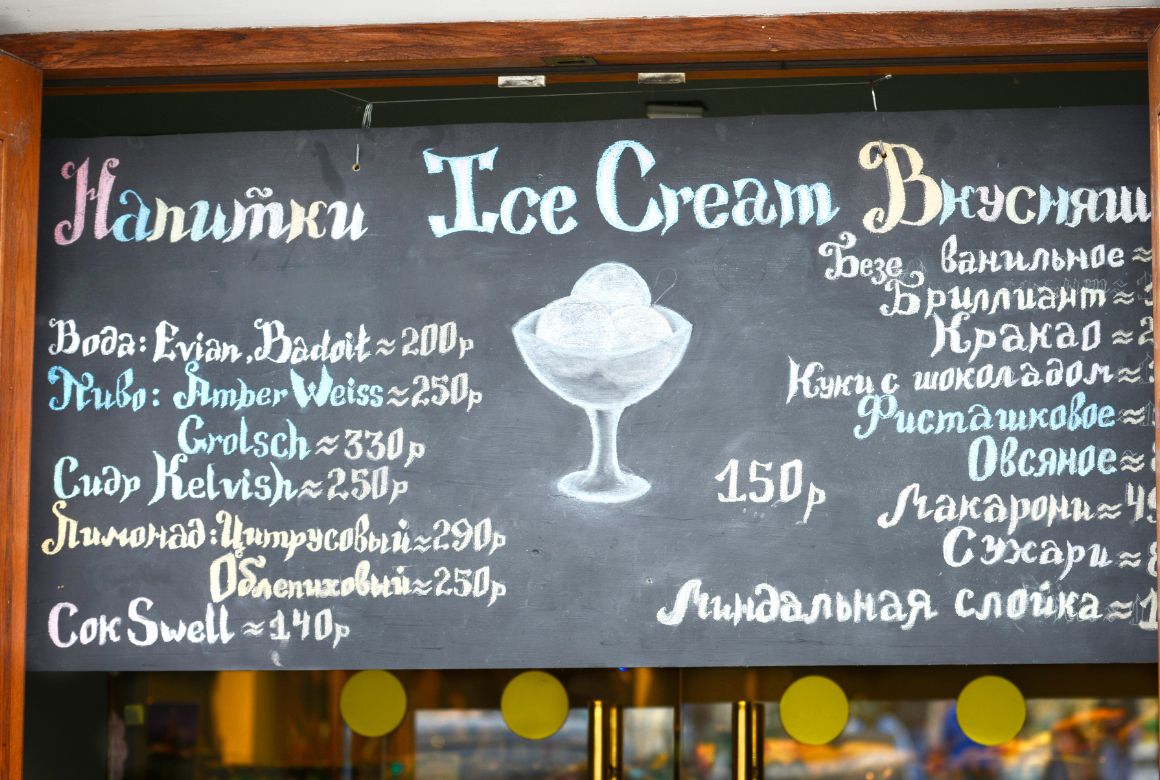 Напитки
Вода: Evian, Badoit ≈ 200р
Пиво: Amber Weiss ≈ 250р
Grolsch ≈ 330р
Сидр Kelvish ≈ 250р
Лимонад: Цитрусовый ≈ 290р
Облепиховый ≈ 250р
Сок Swell ≈ 140р
Ice Cream
150р
Вкусняш
Безе ванильное ≈
Бриллиант ≈
Кракао ≈ 2
Куки с шоколадом ≈
Фисташковое ≈
Овсяное ≈
Макарони ≈ 49
Сухари ≈
Миндальная слойка ≈ 1